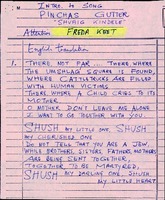 INTRO. to SONG
PINCHAS GUTTER
"SHVAIG KINDELE"
Attention FREDA KORT
English translation
1. THERE, NOT FAR, THERE WHERE
THE UMSHLAG SQUARE IS FOUND,
WHERE CATTLETRUCKS ARE FILLED
WITH HUMAN VICTIMS
THERE WHERE A CHILD CRIES TO ITS
MOTHER
O MOTHER, DON'T LEAVE ME ALONE
I WANT TO GO TOGETHER WITH YOU.
SHUSH MY LITTLE ONE SHUSH
MY CHERISHED ONE
DO NOT TELL THAT YOU ARE A JEW.
WHILE BROTHERS, SISTERS, FATHERS, MOTHERS
ARE BEING SENT TOGETHER
TOGETHER TO BE MARTYRED,
SHUSH MY DARLING ONE SHUSH
MY LITTLE HEART